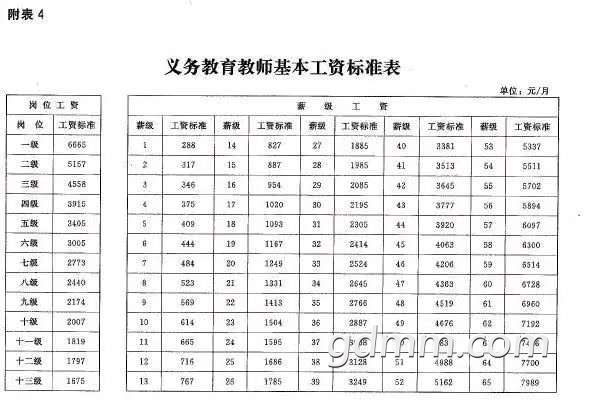 附表 4
义务教育教师基本工资标准表
单位：元/月
岗位工资
岗 位 工资标准
一级 6665
二级 5157
三级 4558
四级 3915
五级 3405
六级 3005
七级 2773
八级 2440
九级 2174
十级 2007
十一级 1819
十二级 1797
十三级 1675
薪 级 工 资
薪级 工资标准 薪级 工资标准 薪级 工资标准 薪级 工资标准 薪级 工资标准
1 288 14 827 27 1885 40 3381 53 5337
2 317 15 887 28 1985 41 3513 54 5511
3 346 16 954 29 2085 42 3645 55 5702
4 375 17 1020 30 2195 43 3777 56 5894
5 409 18 1093 31 2305 44 3920 57 6097
6 444 19 1167 32 2414 45 4063 58 6300
7 484 20 1249 33 2524 46 4206 59 6514
8 523 21 1331 34 2645 47 4363 60 6728
9 569 22 1413 35 2766 48 4519 61 6960
10 614 23 1504 36 2887 49 4676 62 7192
11 665 24 1595 37
12 716 25 1686 38 3128 51 4988 64 7700
13 767 26 1785 39 3249 52 5162 65 7989
gdmm.com